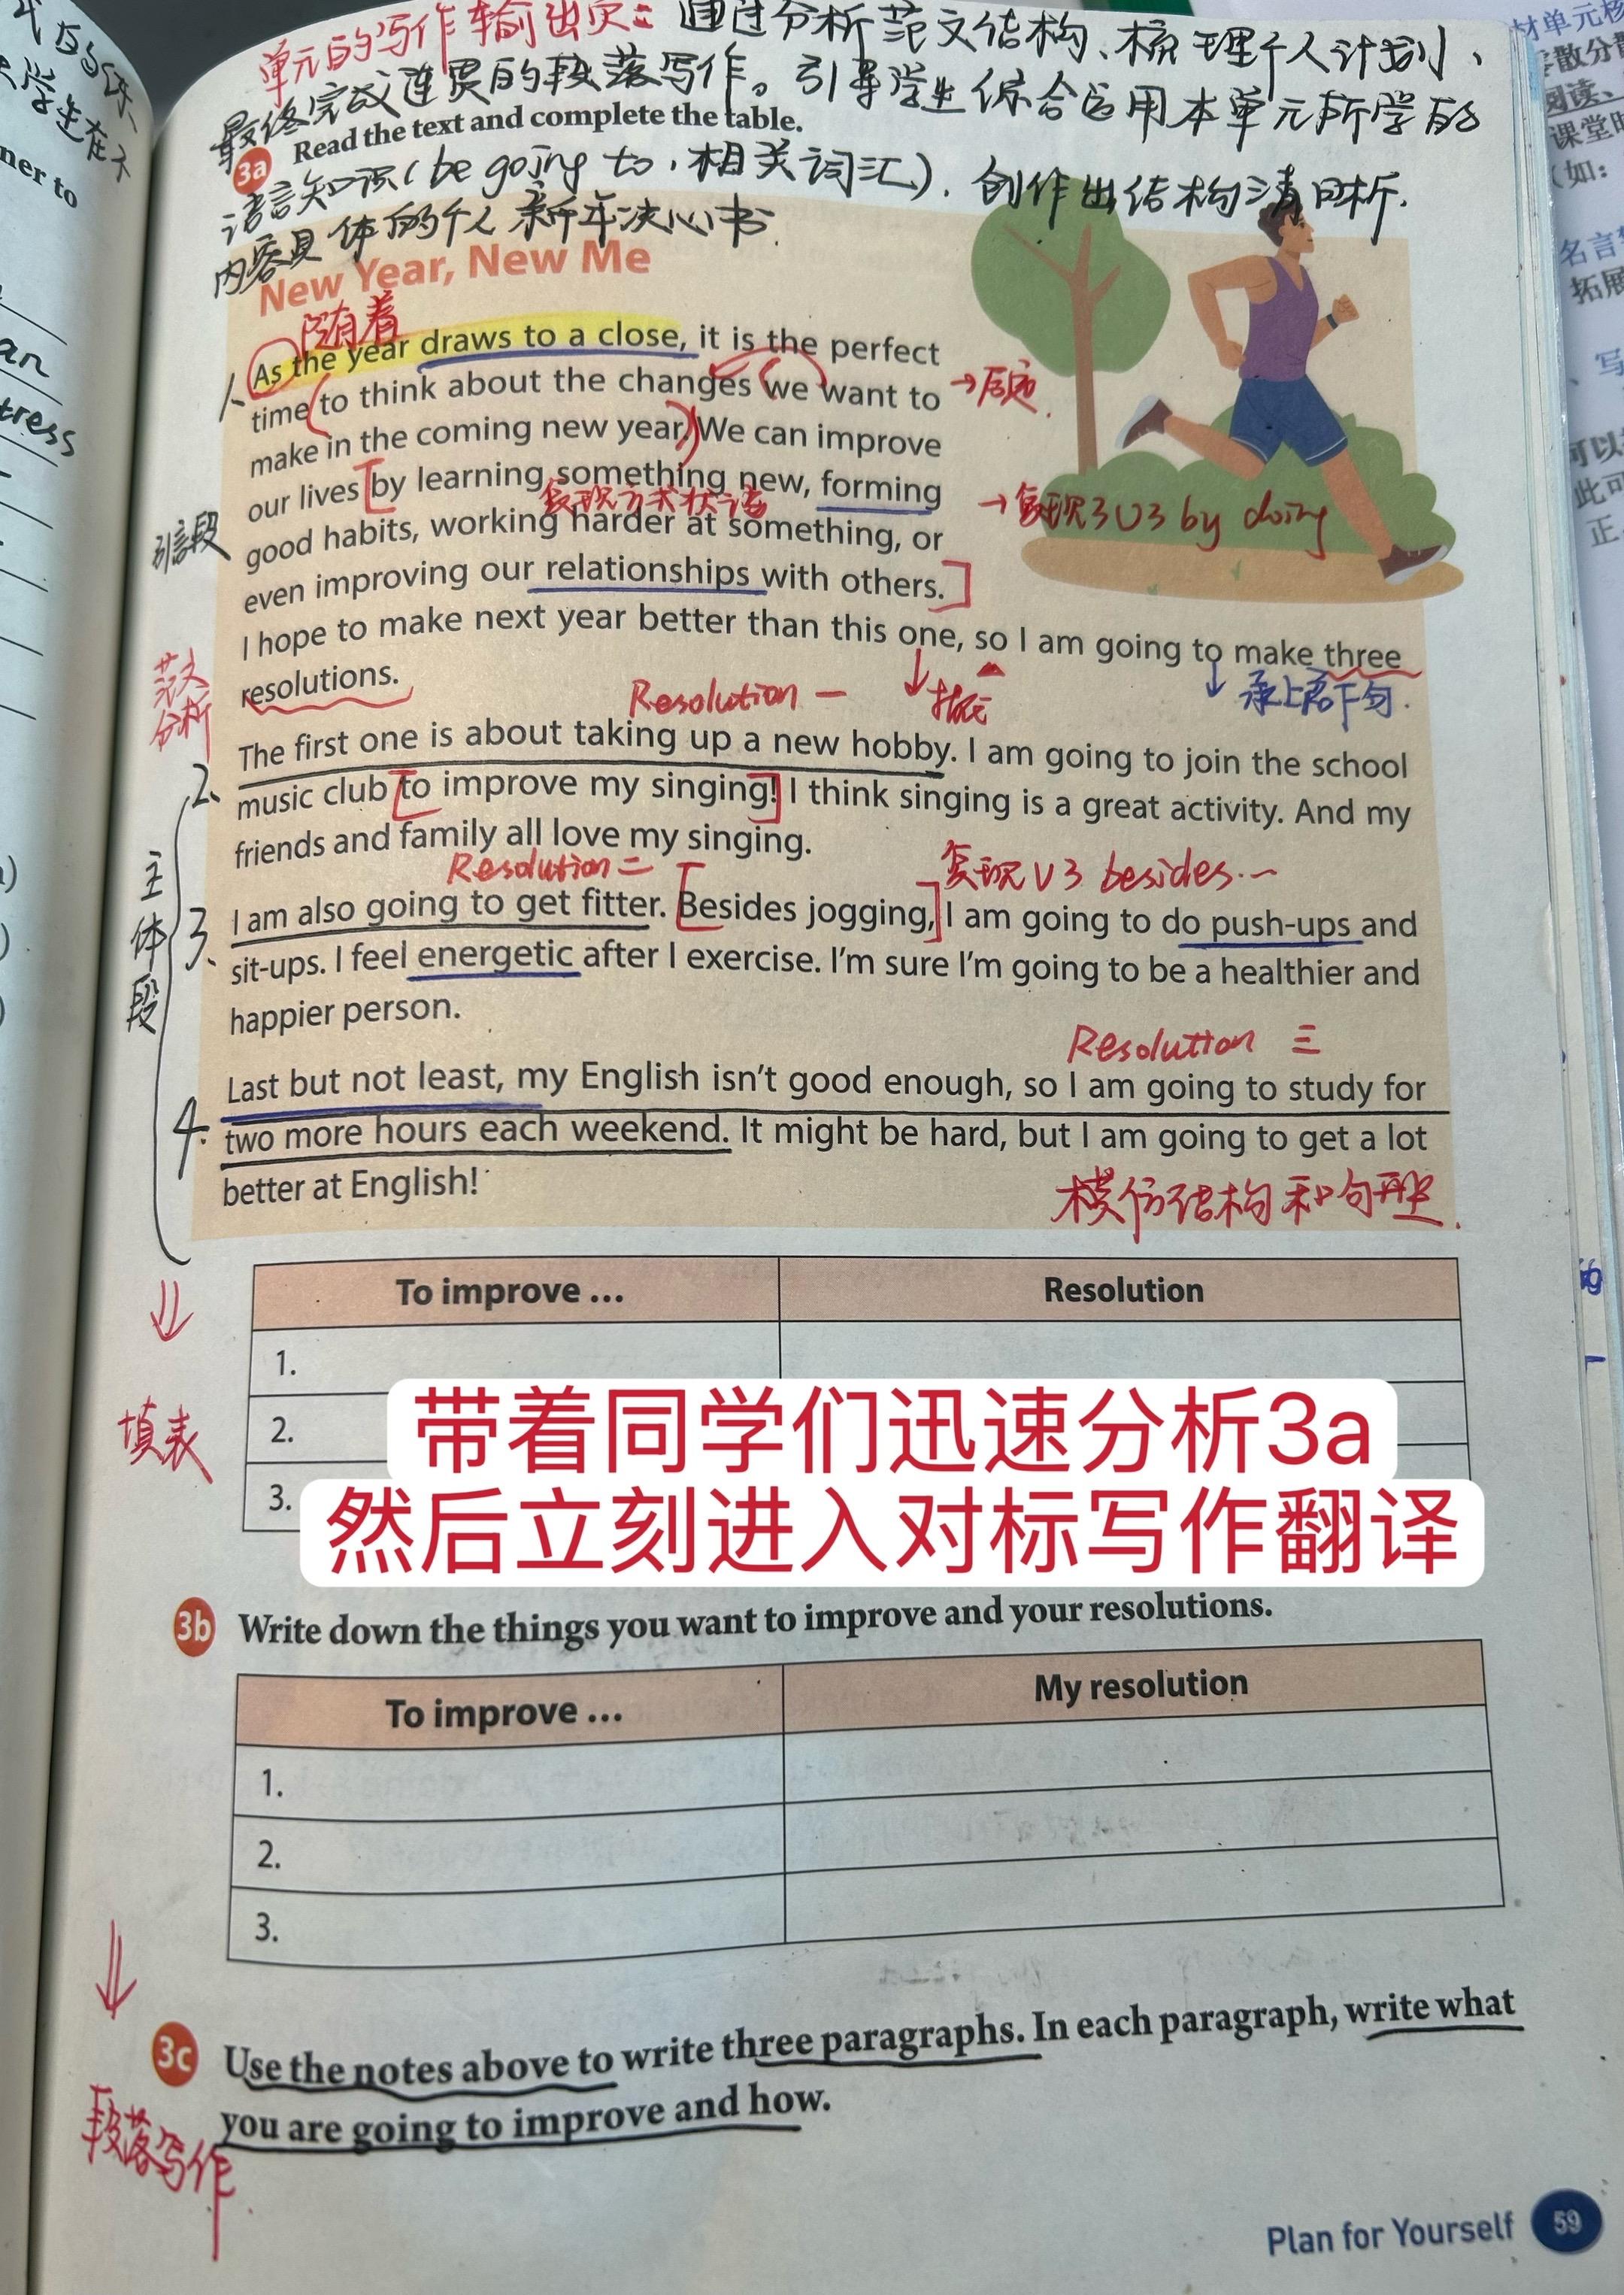 单元的写作输出页：通过分析范文结构、梳理个人计划、
最终完成连贯的段落写作。引导学生综合运用本单元所学的
3a Read the text and complete the table.
语言知识(be going to，相关词汇)，创作出结构清晰，
内容具体的个人新年决心书
New Year, New Me
随着
1. As the year draws to a close, it is the perfect
time to think about the changes we want to →后定.
make in the coming new year. We can improve
our lives by learning something new, forming
复现方式状语
→复现3U3 by doing
引言段
good habits, working harder at something, or
even improving our relationships with others.
I hope to make next year better than this one, so I am going to make three
范文分析
resolutions.
承上启下句.
Resolution 一
2. The first one is about taking up a new hobby. I am going to join the school
music club to improve my singing! I think singing is a great activity. And my
friends and family all love my singing.
主体段
Resolution 二
复现U3 besides...
3. I am also going to get fitter. Besides jogging, I am going to do push-ups and
sit-ups. I feel energetic after I exercise. I'm sure I'm going to be a healthier and
happier person.
Resolution 三
4. Last but not least, my English isn't good enough, so I am going to study for
two more hours each weekend. It might be hard, but I am going to get a lot
better at English!
模仿结构和句型.
To improve ... Resolution
1.
填表
2.
3.
带着同学们迅速分析3a
然后立刻进入对标写作翻译
3b Write down the things you want to improve and your resolutions.
To improve ... My resolution
1.
2.
3.
3c Use the notes above to write three paragraphs. In each paragraph, write what
you are going to improve and how.
段落写作
Plan for Yourself 59
ner to
an
tress
材单元核
零散分散
阅读、
课堂时
(如：
名言
拓展
、写
可以
此可
正